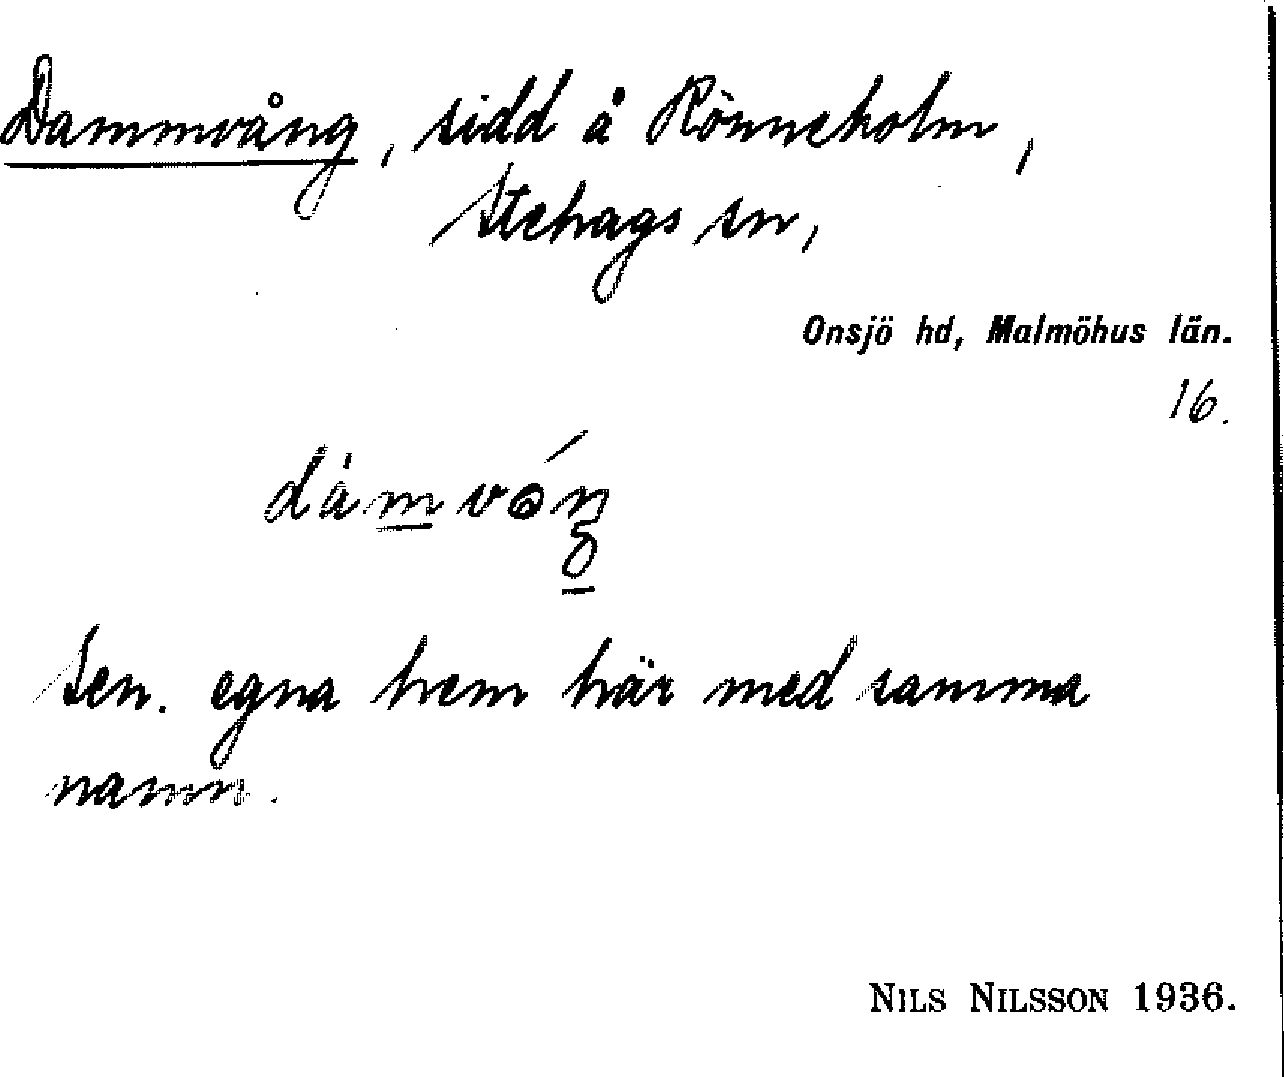 Dammvång, sidd å Rönneholm,
Stehags sn,
Onsjö hd, Malmöhus län.
16.
dàmvóŋ
Sen. egna hem här med samma
namn.
NILS NILSSON 1936.